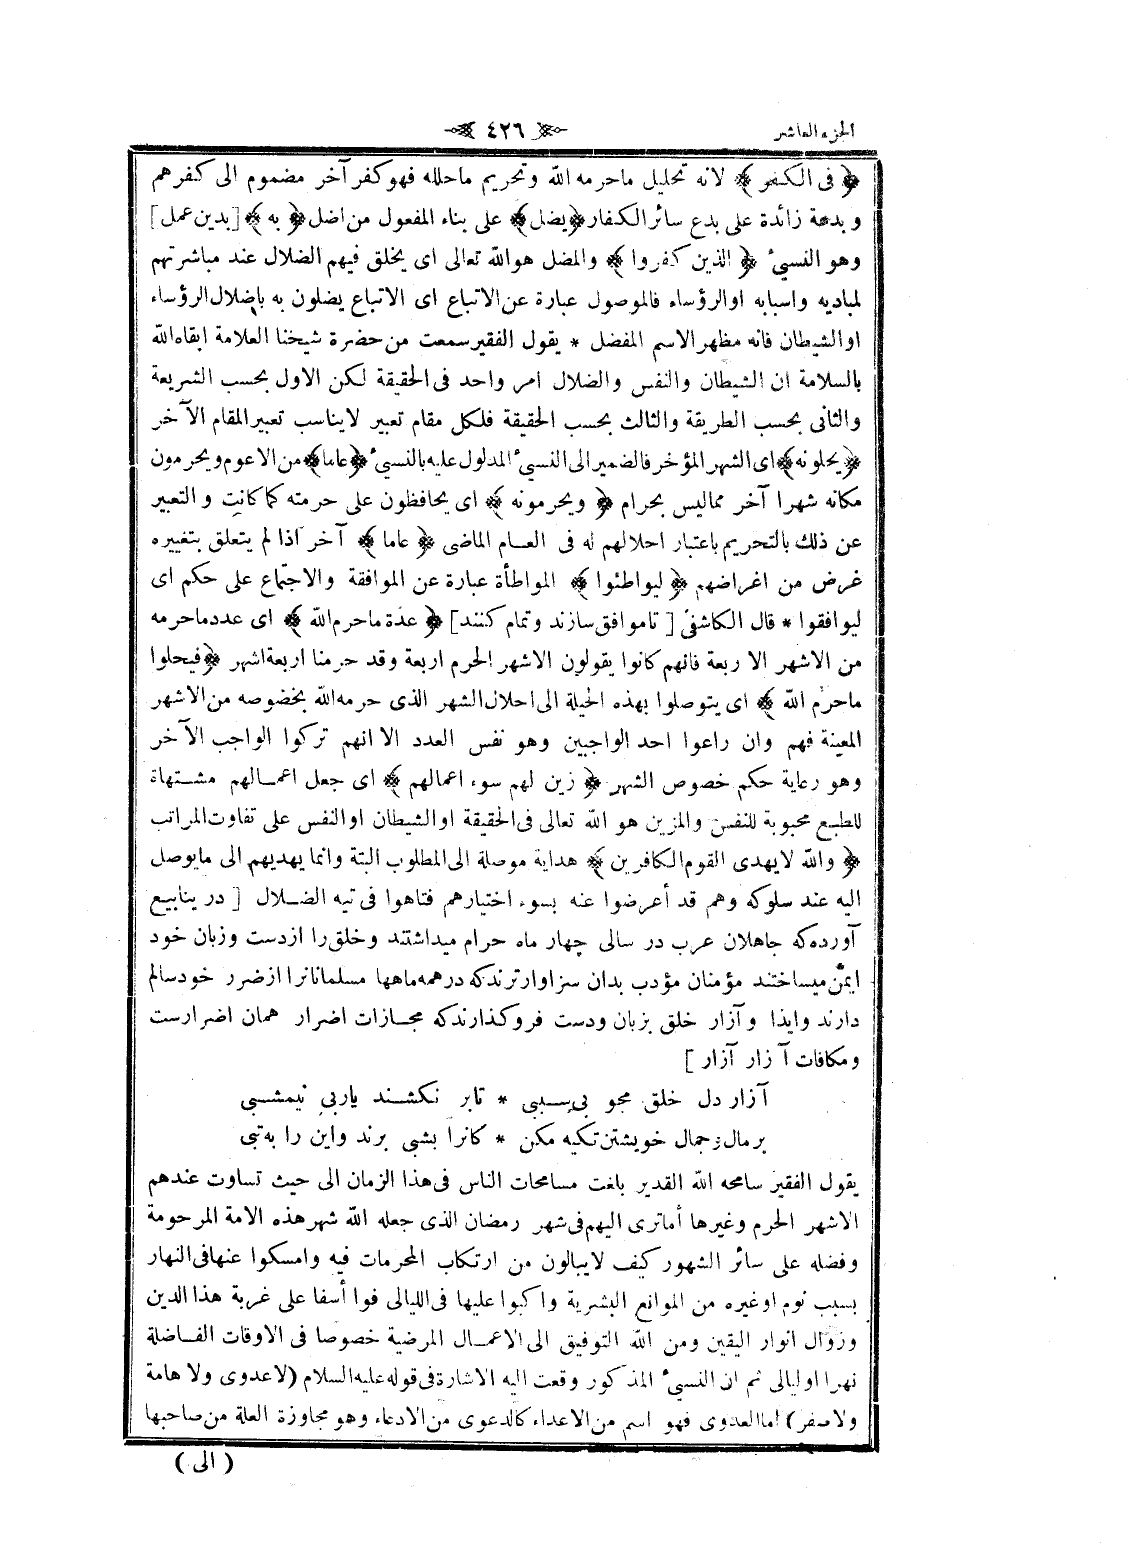 الجزء العاشر ٤٢٦
﴿ فى الكفر ﴾ لانه تحليل ماحرمه الله وتحريم ماحلله فهو كفر آخر مضموم الى كفرهم
وبدعة زائدة على بدع سائر الكفار ﴿ يضل ﴾ على بناء المفعول من اضل ﴿ به ﴾ [بدين عمل]
وهو النسىء ﴿ الذين كفروا ﴾ والمضل هوالله تعالى اى يخلق فيهم الضلال عند مباشرتهم
لمباديه واسبابه اوالرؤساء فالموصول عبارة عن الاتباع اى الاتباع يضلون به باضلال الرؤساء
اوالشيطان فانه مظهر الاسم المفضل * يقول الفقير سمعت من حضرة شيخنا العلامة ابقاه الله
بالسلامة ان الشيطان والنفس والضلال امر واحد فى الحقيقة لكن الاول بحسب الشريعة
والثانى بحسب الطريقة والثالث بحسب الحقيقة فلكل مقام تعبير لايناسب تعبير المقام الآخر
﴿ يحلونه ﴾ اى الشهر المؤخر فالضمير الى النسىء المدلول عليه بالنسىء ﴿ عاما ﴾ من الاعوم ويحرمون
مكانه شهرا آخر مماليس بحرام ﴿ ويحرمونه ﴾ اى يحافظون على حرمته كما كانت والتعبير
عن ذلك بالتحريم باعتبار احلالهم له فى العام الماضى ﴿ عاما ﴾ آخر اذا لم يتعلق بتغييره
غرض من اغراضهم ﴿ ليواطئوا ﴾ المواطأة عبارة عن الموافقة والاجتماع على حكم اى
ليوافقوا * قال الكاشفى [ تاموافق سازند وتمام كنند] ﴿ عدة ماحرم الله ﴾ اى عدد ماحرمه
من الاشهر الاربعة فانهم كانوا يقولون الاشهر الحرم اربعة وقد حرمنا اربعة اشهر ﴿ فيحلوا
ماحرم الله ﴾ اى يتوصلوا بهذه الحيلة الى احلال الشهر الذى حرمه الله بخصوصه من الاشهر
المعينة فهم وان راعوا احد الواجبين وهو نفس العدد الا انهم تركوا الواجب الآخر
وهو رعاية حكم خصوص الشهر ﴿ زين لهم سوء اعمالهم ﴾ اى جعل اعمالهم مشتهاة
للطبع محبوبة للنفس والمزين هو الله تعالى فى الحقيقة اوالشيطان اوالنفس على تفاوت المراتب
﴿ والله لايهدى القوم الكافرين ﴾ هداية موصلة الى المطلوب البتة وانما يهديهم الى مايوصل
اليه عند سلوكه وهم قد أعرضوا عنه بسوء اختيارهم فتاهوا فى تيه الضلال [ در ينابيع
آورده كه جاهلان عرب در سالى چهار ماه حرام ميداشتند وخلق را از دست وزبان خود
ايمن ميساختند مؤمنان مؤدب بدان سزاوارترند كه در همه ماهها مسلمانانرا از ضرر خود سالم
دارند وايذا وآزار خلق بزبان ودست فروكذارند كه مجازات اضرار همان اضرارست
ومكافات آزار آزار ]
آزار دل خلق مجو بى سببى * تابر نكشند ياربى نيمشبى
برمال وجمال خويشتن تكيه مكن * كانرا بشبى برند واين را به تبى
يقول الفقير سامحه الله القدير بلغت مسامحات الناس فى هذا الزمان الى حيث تساوت عندهم
الاشهر الحرم وغيرها أماترى اليهم فى شهر رمضان الذى جعله الله شهر هذه الامة المرحومة
وفضله على سائر الشهور كيف لايبالون من ارتكاب المحرمات فيه وامسكوا عنها فى النهار
بسبب نوم اوغيره من الموانع البشرية واكبوا عليها فى الليالى فوا أسفا على غربة هذا الدين
وزوال انوار اليقين ومن الله التوفيق الى الاعمال المرضية خصوصا فى الاوقات الفاضلة
نهرا اوليالى ثم ان النسىء المذكور وقعت اليه الاشارة فى قوله عليه السلام (لاعدوى ولا هامة
ولاصفر) اما العدوى فهو اسم من الاعداء كالدعوى من الادعاء وهو مجاوزة العلة من صاحبها
( الى )